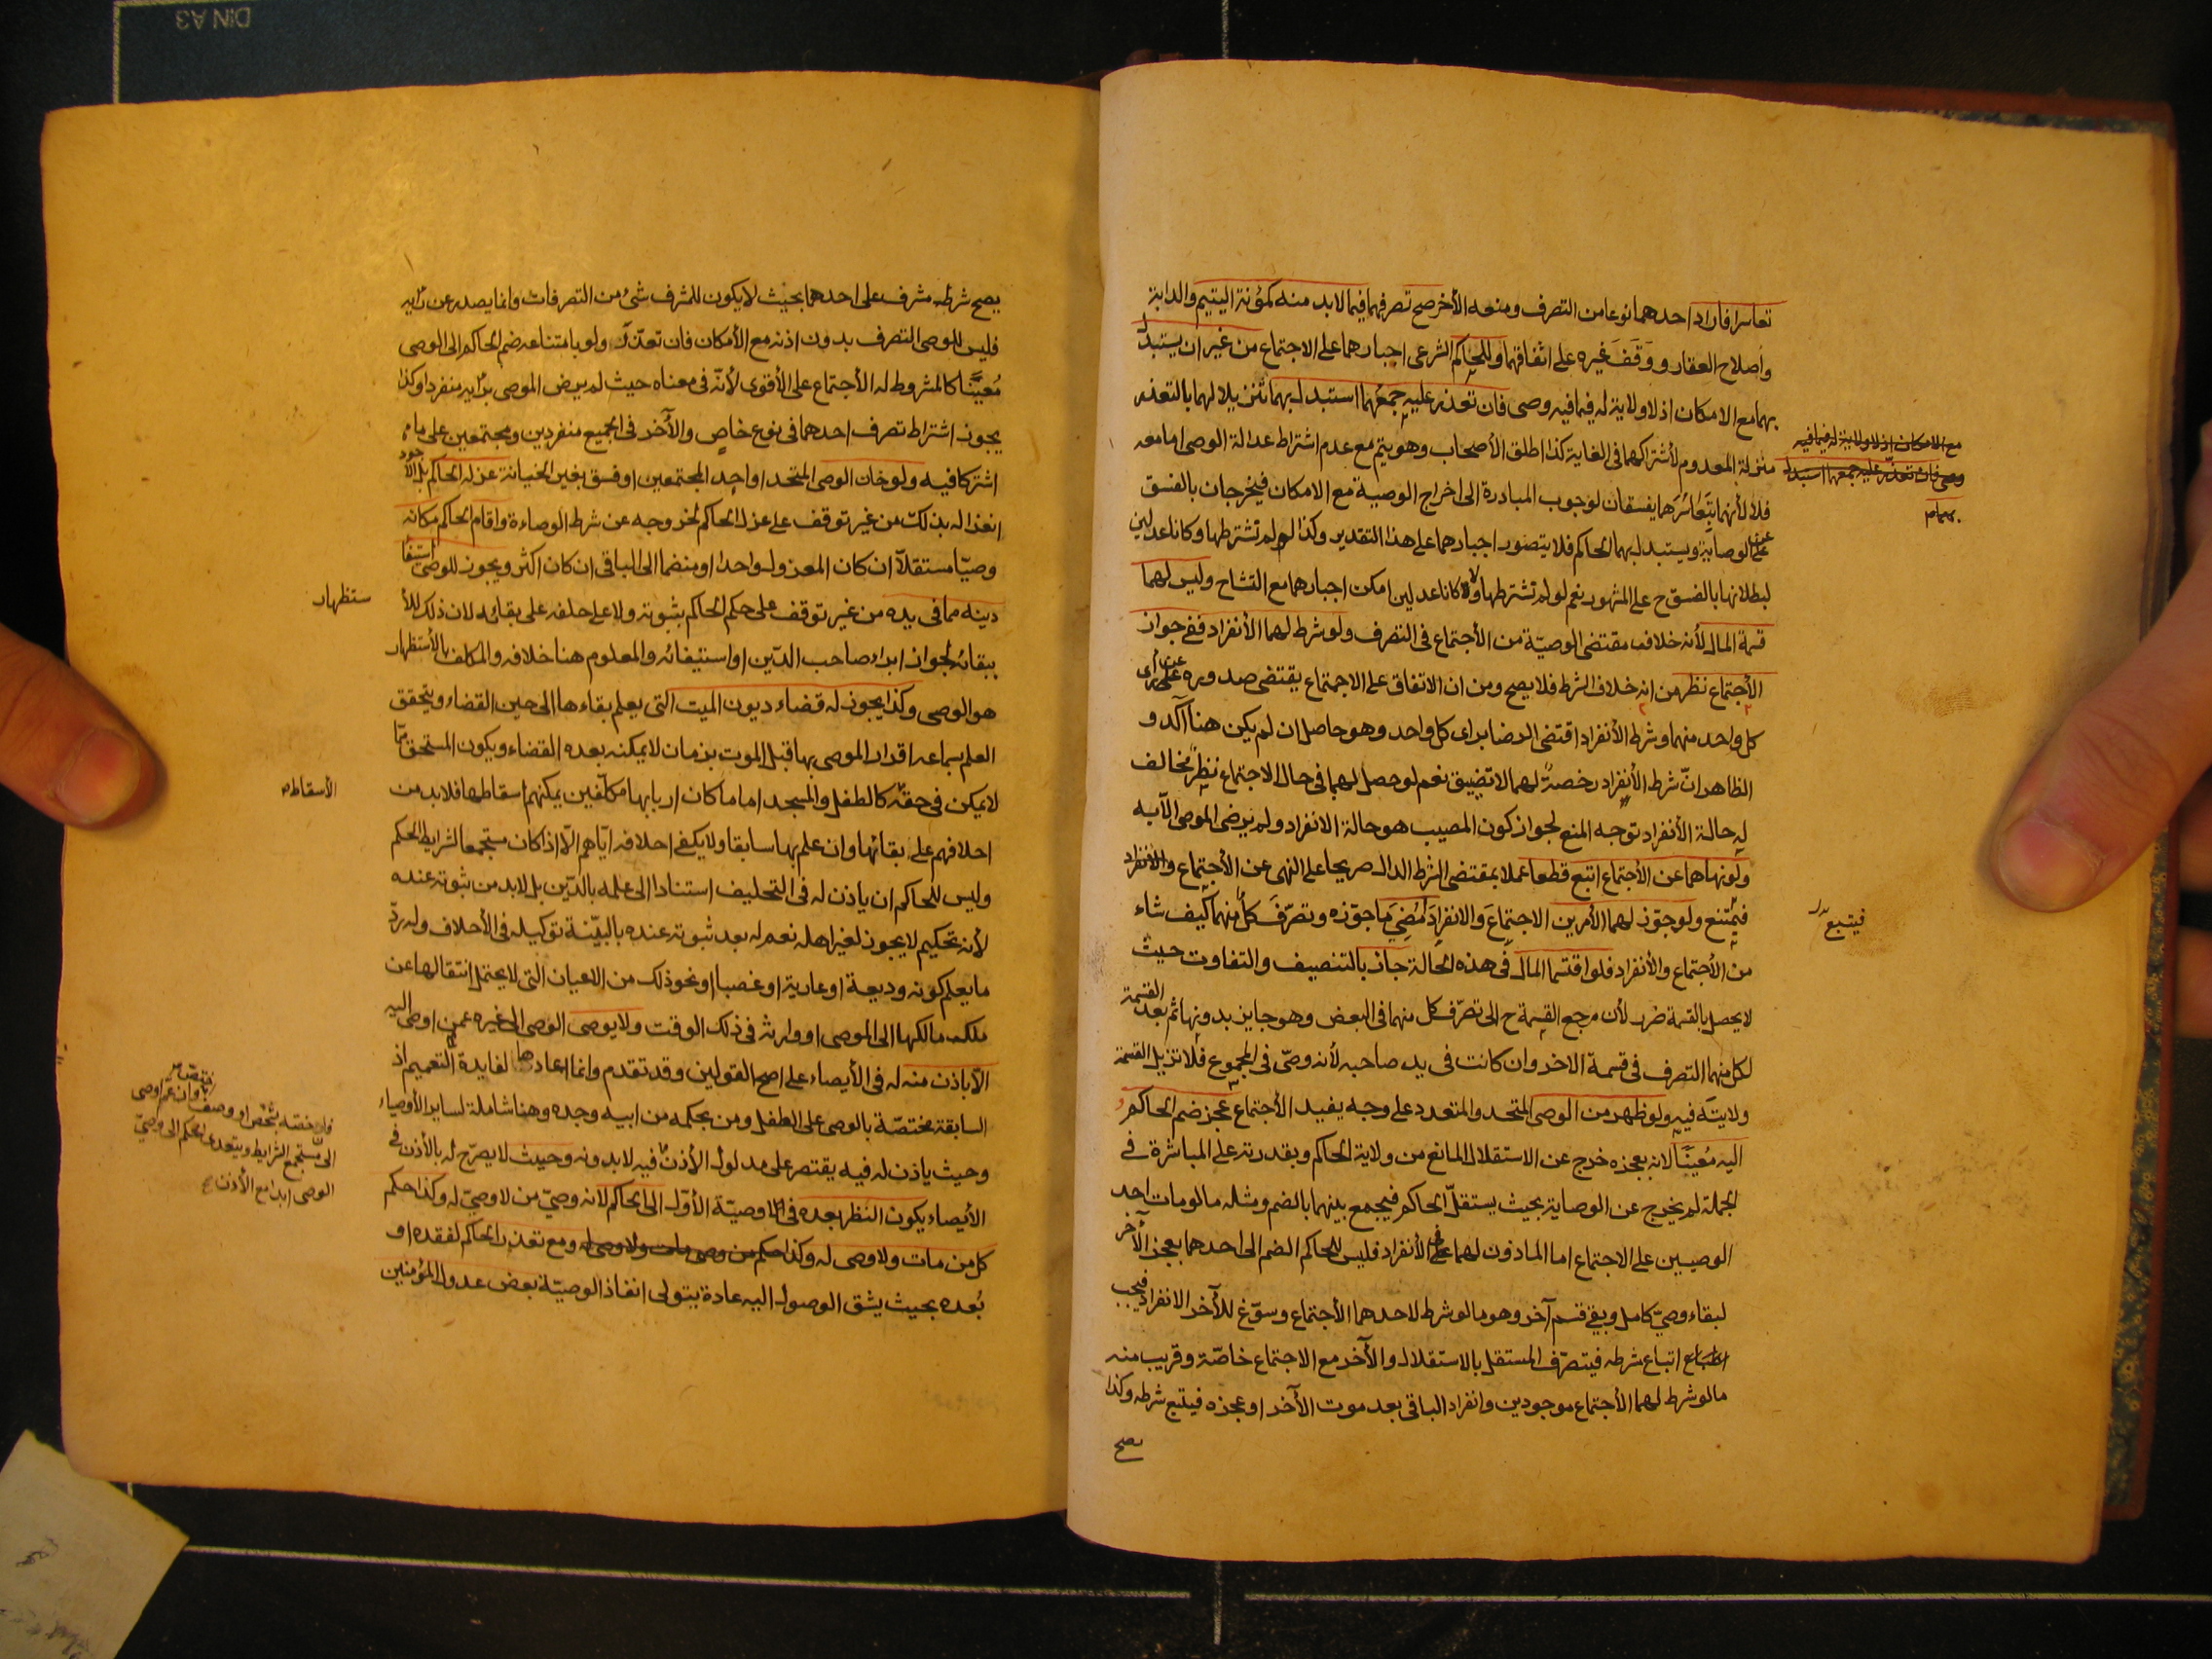 تعاسرا فاراد احدهما نوعا من التصرف ومنعه الأخر صح تصرفهما فيما لابد منه كمؤنة اليتيم والدابة
واصلاح العقار ووَقَفَ غيره على اتفاقهما وللحاكم الشرعى اجبارهما على الاجتماع من غير ان يستبدل
بهما مع الامكان اذ لا ولاية له فيما فيه وصى فان تعذر عليه جمعهما استبدل بهما تنزيلا لهما بالتعذر
منزلة المعدوم لأشتراكهما فى الغاية كذا اطلق الأصحاب وهو يتم مع عدم اشتراط عدالة الوصى اما معه
فلا لأنهما بتعاسرهما يفسقان لوجوب المبادرة الى اخراج الوصية مع الامكان فيخرجان بالفسق
عن الوصاية ويستبدل بهما الحاكم فلا يتصور اجبارهما على هذا التقدير وكذا لو لم تشترطها وكانا عدلين
لبطلانها بالفسق ح على المشهور نعم لو لم تشترطها ولا كانا عدلين امكن اجبارهما مع التشاح وليس لهما
قسمة المال لأنه خلاف مقتضى الوصيّة من الأجتماع فى التصرف ولو شرط لهما الأنفراد ففى جواز
الأجتماع نظر من انه خلاف الشرط فلا يصح ومن ان الاتفاق على الاجتماع يقتضى صدوره عن رأى
كل واحد منهما وشرط الأنفراد اقتضى الرضا براى كل واحد وهو حاصل ان لم يكن هنا آكد و
الظاهر انّ شرط الأنفراد رخصةً لهما لا تضييق نعم لو حصل لهما فى حال الاجتماع نظرٌ مخالف
له حالة الأنفراد توجه المنع لجواز كون المصيب هو حالة الانفراد ولم يرضى الموصى الآبه
ولو نهاهما عن الأجتماع اتبع قطعا عملا بمقتضى الشرط الدال صريحا على النهى عن الأجتماع والانفراد
فيمتنع ولو جوّز لهما الأمرين الاجتماعَ والانفرادَ اُمْضِىَ ما جوّزه وتصرّفَ كلٌ منهما كيف شاء
من الأجتماع والأنفراد فلو اقتسما المال فى هذه الحالة جاز بالتنصيف والتفاوت حيث
لا يحصل بالقسمة ضرر لأن مرجع القسمة ح الى تصرّف كل منهما فى البعض وهو جايز بدونها ثم بعد القسمة
لكل منهما التصرف فى قسمة الاخر وان كانت فى يد صاحبه لأنه وصّى فى المجموع فلا تزيل القسمة
ولايته فيه ولو ظهر من الوصى المتحد والمتعدد على وجه يفيد الأجتماع عجز ضم الحاكم
اليه مُعينًا لانه بعجزه خرج عن الاستقلال المانع من ولاية الحاكم وبقدرته على المباشرة فى
الجملة لم يخرج عن الوصاية بحيث يستقلّ الحاكم فيجمع بينهما بالضم ومثله ما لو مات احد
الوصيين على الاجتماع اما الماذون لهما فى الأنفراد فليس للحاكم الضم الى احدهما بعجز الآخر
لبقاء وصىّ كامل وبقى قسم آخر وهو ما لو شرط لاحدهما الأجتماع وسوّغ للآخر الانفراد فيجب
اتباع شرطه فيتصرّف المستقل بالاستقلال والآخر مع الاجتماع خاصّة وقريب منه
ما لو شرط لهما الأجتماع موجودين وانفراد الباقى بعد موت الآخر او عجزه فيتبع شرطه وكذا
يصح
مع الامكان اذ لا ولاية له فيما فيه
وصى فان تعذر عليه جمعهما استبدل
بهما
فيتبع
يصح شرط مشرف على احدهما بحيث لا يكون للمشرف شئ من التصرفات وانما يصدر عن رأيه
فليس للوصى التصرف بدون اذنه مع الأمكان فان تعذّر ولو بامتناعه ضم الحاكم الى الوصى
مُعينًا كالمشروط له الأجتماع على الأقوى لأنّه فى معناه حيث لم يرض الموصى برأيه منفردا وكذا
يجوز اشتراط تصرف احدهما فى نوع خاص والآخر فى الجميع منفردين ومجتمعين على ما
اشتركا فيه ولو خان الوصى المتحد او احد المجتمعين او فسق بغير الخيانة عزله الحاكم بل الأجود
انعزاله بذلك من غير توقف على عزل الحاكم لخروجه عن شرط الوصاءة واقام الحاكم مكانه
وصيّا مستقلاّ ان كان المعزول واحدا او منضما الى الباقى ان كان اكثر ويجوز للوصى استيفاء
دينه مما فى يده من غير توقف على حكم الحاكم بثبوته ولا على حلفه على بقائه لان ذلك للأ
ستظهار
ببقائه لجواز ابراء صاحب الدّين او استيفائه والمعلوم هنا خلافه والمكلف بالأستظهار
هو الوصى وكذا يجوز له قضاء ديون الميت التى يعلم بقاءها الى حين القضاء ويتحقق
العلم بسماعه اقرار الموصى بها قبل الموت بزمان لا يمكنه بعده القضاء ويكون المستحق ممّا
لا يمكن فى حقه كالطفل والمسجد اما ما كان اربابها مكلّفين يمكنهم اسقاطها فلابد من
الأسقاط
احلافهم على بقائها وان علم بها سابقا ولا يكفى احلافه ايّاهم الاّ اذا كان مستجمعا لشرايط الحكم
وليس للحاكم ان ياذن له فى التحليف استنادا الى علمه بالدّين بل لابد من ثبوته عنده
لأنه تحكيم لا يجوز لغير اهله نعم له بعد ثبوته عنده بالبيّنة توكيله فى الأحلاف وله ردّ
ما يعلم كونه وديعة او عارية او غصبا او نحو ذلك من الاعيان التى لا يحتمل انتقالها عن
ملك مالكها الى الموصى او وارثه فى ذلك الوقت ولا يوصى الوصى الى غيره عمن اوصى اليه
الاّ باذن منه له فى الأيصاء على اصح القولين وقد تقدم وانما اعادها لفايدة التعميم اذ
السابقة مختصّة بالوصى على الطفل ومن بحكمه من ابيه وجده وهنا شاملة لساير الأوصياء
وحيث ياذن له فيه يقتصر على مدلول الأذن
فان خصّه بشخص او وصف اختصّ وان عمّ اوصى
الى مستجمع الشرايط ويتعدى الحكم الى وصىّ
الوصى ابدا مع الأذن
فيه لا بدونه وحيث لا يصرّح له بالأذن فى
الأيصاء يكون النظر بعده فى وصيّة الأوّل الى الحاكم لانه وصىّ من لا وصىّ له وكذا حكم
كل من مات ولا وصى له وكذا حكم من وصى مات ولا وصى له ومع تعذر الحاكم لفقده او
بُعده بحيث يشق الوصول اليه عادة يتولى انفاذ الوصيّة بعض عدول المؤمنين
DIN A3